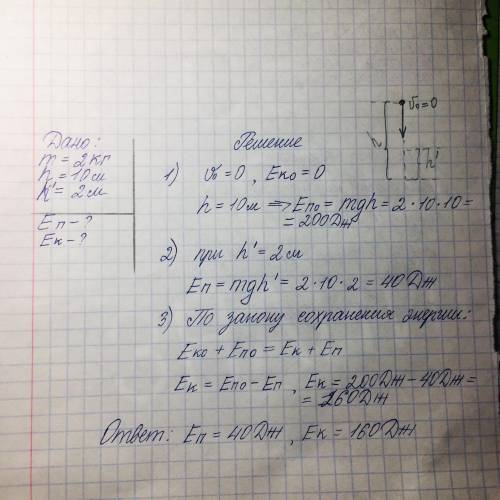 Дано:
m = 2кг
h = 10м
h' = 2м
Eп - ?
Eк - ?
Решение
1) v₀ = 0 , Eк₀ = 0
h = 10м => Eп₀ = mgh = 2·10·10 =
= 200Дж
2) при h' = 2м
Eп = mgh' = 2·10·2 = 40Дж
3) По закону сохранения энергии:
Eк₀ + Eп₀ = Eк + Eп
Eк = Eп₀ - Eп , Eк = 200Дж - 40Дж =
= 160Дж
Ответ: Eп = 40Дж , Eк = 160Дж
v₀ = 0
h
h'